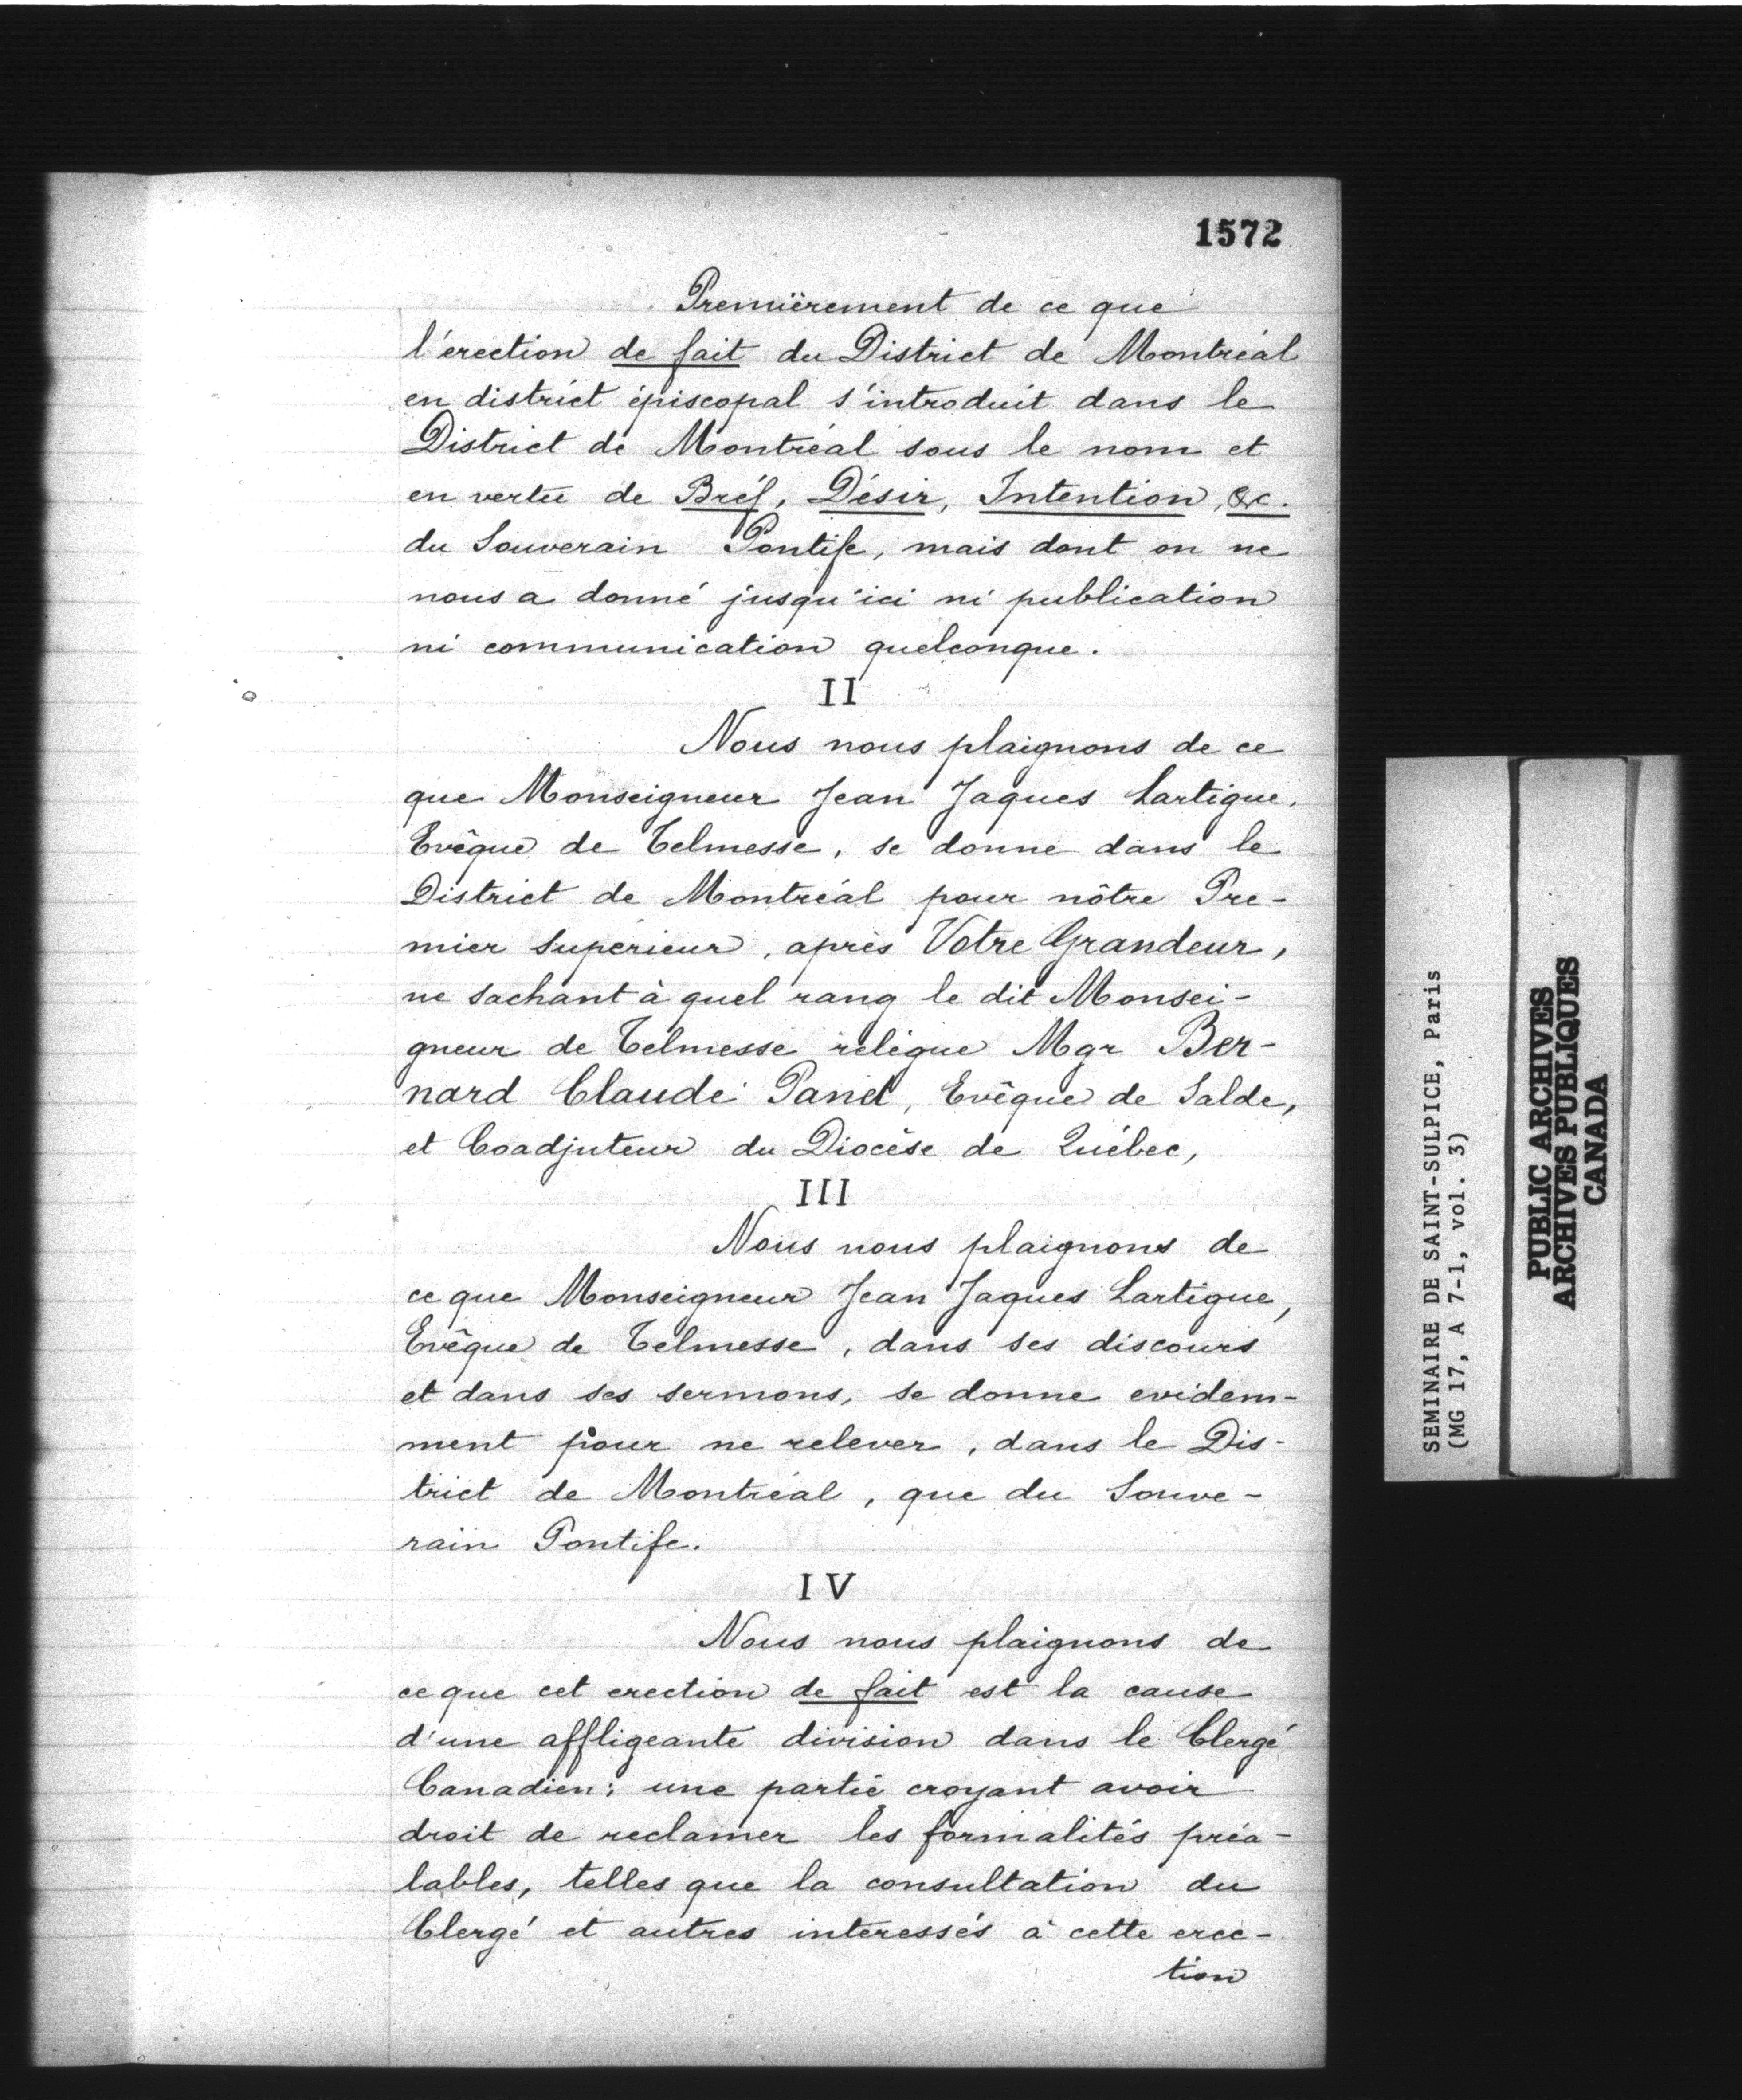 1572
Premièrement de ce que
l'erection de fait du District de Montréal
en district épiscopal s'introduit dans le
District de Montréal sous le nom et
en vertu de Bréf, Désir, Intention, &c.
du Souverain Pontife, mais dont on ne
nous a donné jusqu'ici ni publication
ni communication quelconque.
II
Nous nous plaignons de ce
que Monseigneur Jean Jaques Lartigue,
Evêque de Telmesse, se donne dans le
District de Montréal pour nôtre Pre-
mier Superieur, après Votre Grandeur,
ne sachant à quel rang le dit Monsei-
gneur de Telmesse relègue Mgr Ber-
nard Claude Panet, Evêque de Salde,
et Coadjuteur du Diocèse de Québec,
III
Nous nous plaignons de
ce que Monseigneur Jean Jaques Lartigue,
Evêque de Telmesse, dans ses discours
et dans ses sermons, se donne evidem-
ment pour ne relever, dans le Dis-
trict de Montréal, que du Souve-
rain Pontife.
IV
Nous nous plaignons de
ce que cet erection de fait est la cause
d'une affligeante division dans le Clergé
Canadien; une partie croyant avoir
droit de reclamer les formalités préa-
lables, telles que la consultation du
Clergé et autres interessés à cette erec-
tion
SEMINAIRE DE SAINT-SULPICE, Paris
(MG 17, A 7-1, vol. 3)
PUBLIC ARCHIVES
ARCHIVES PUBLIQUES
CANADA